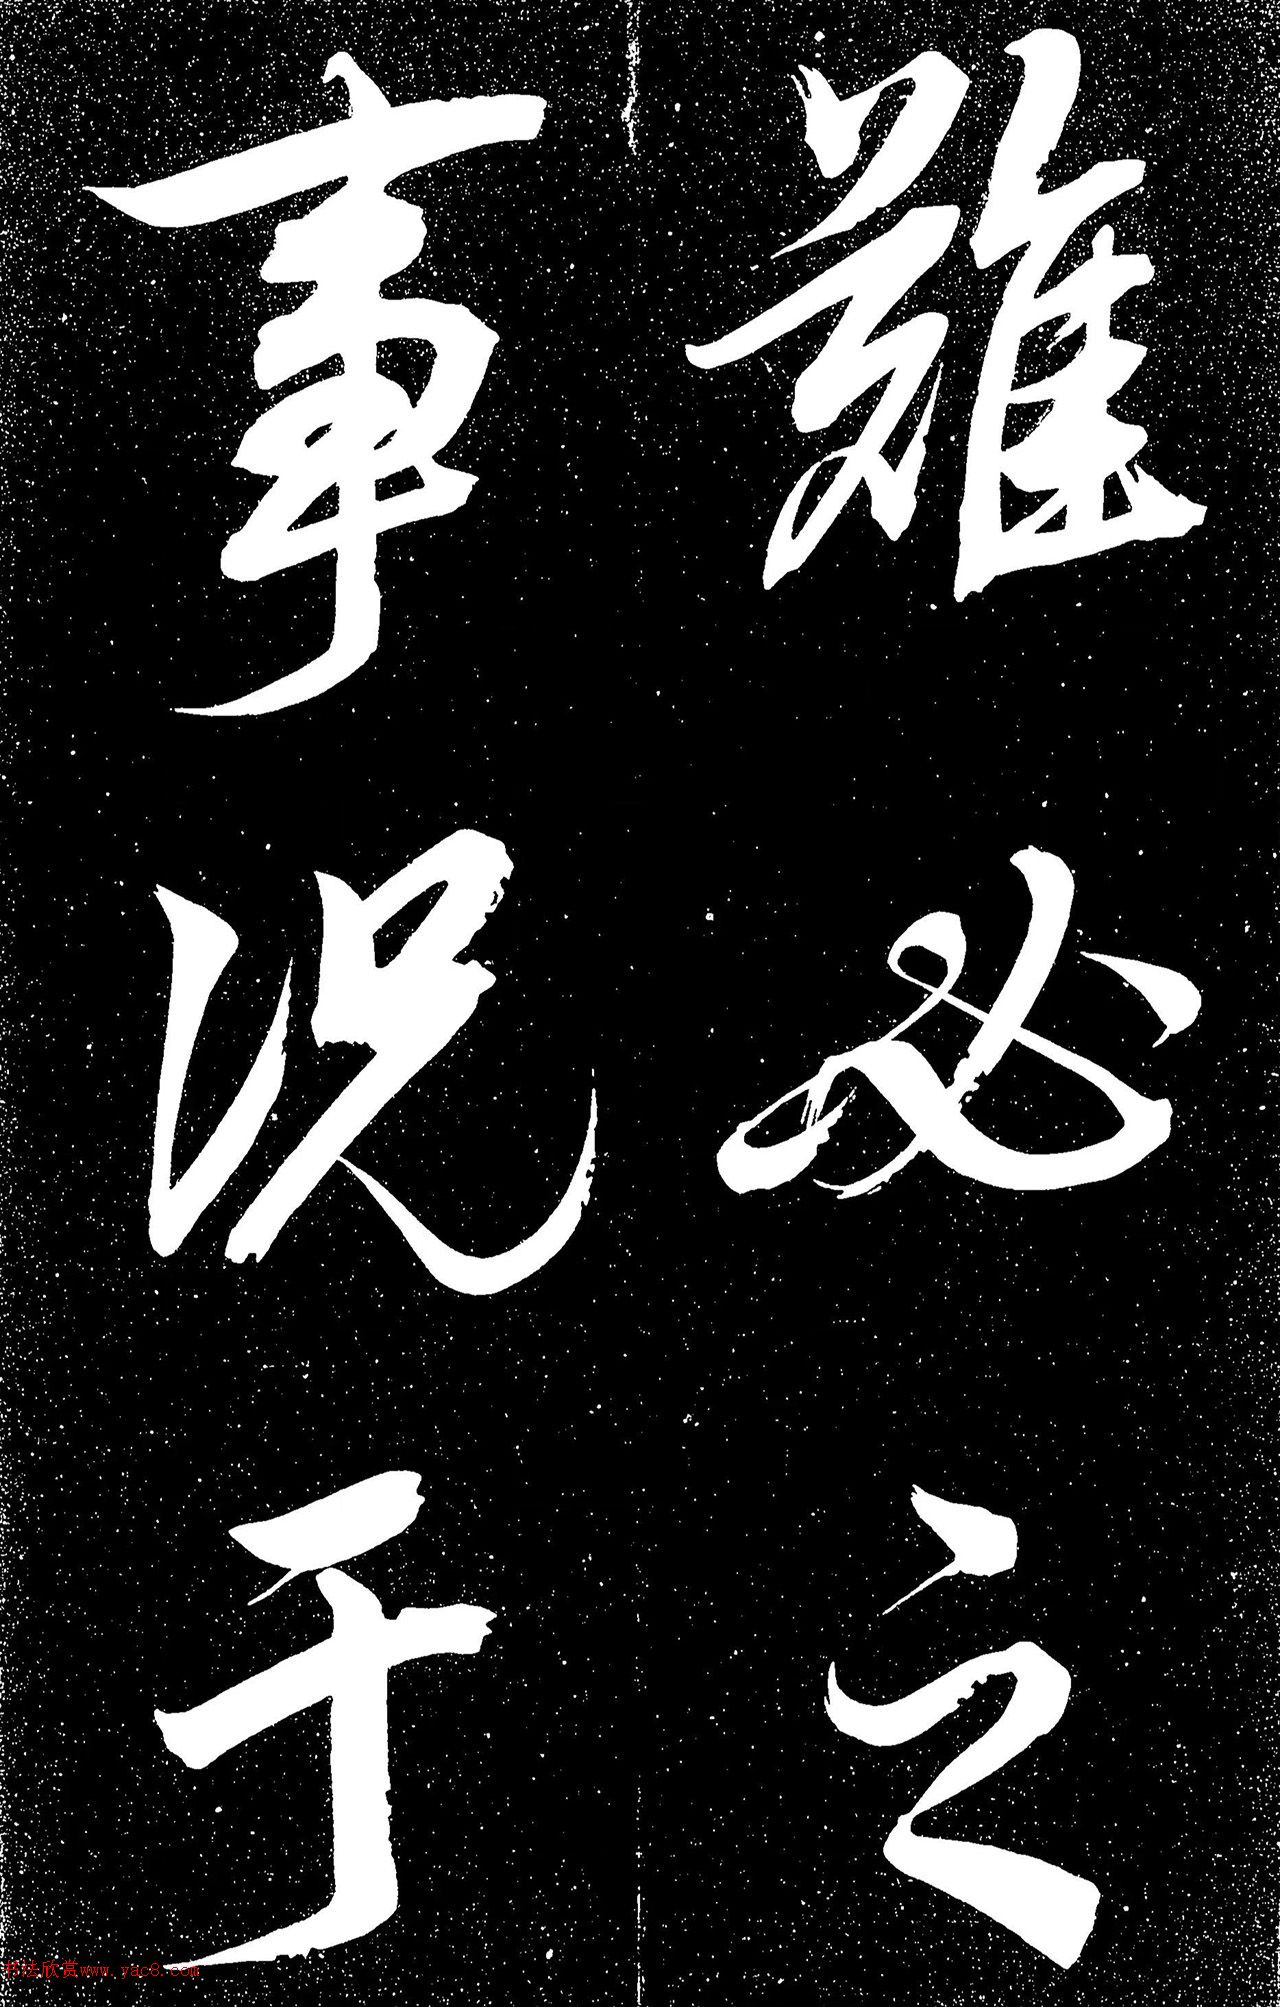 難必之
事况于
书法欣赏www.yac8.com